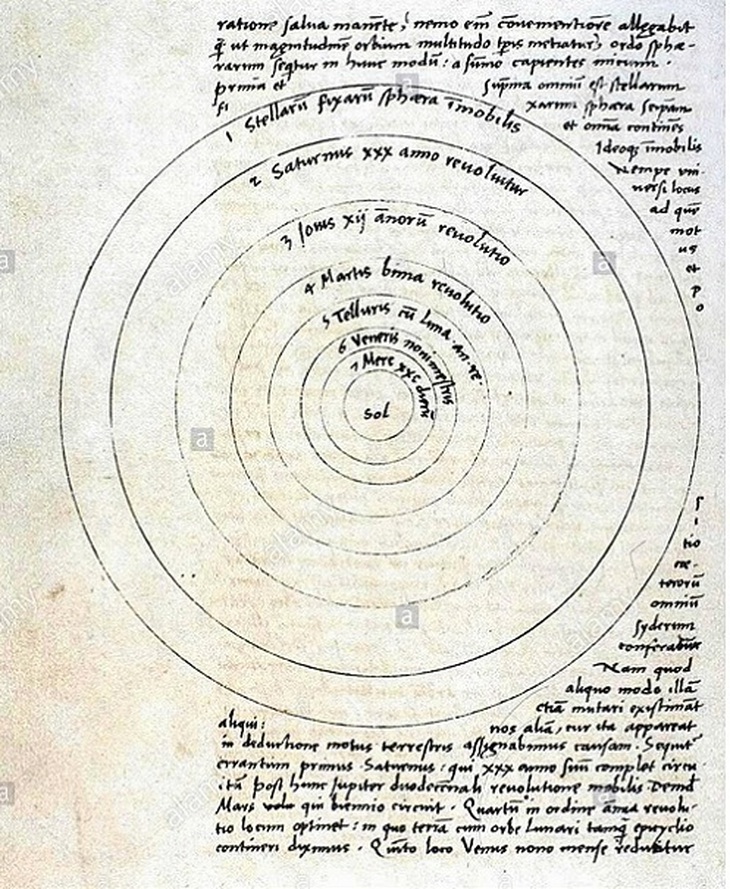 ratione salua manente, nemo em̄ cōuenientiorē allegabit
q̄ ut magnitudinem orbium multitudo tp̄is metiatur, ordo sphæ-
rarum seq̄tur in hunc modū: a sūmo capientes initium.
prima et suprema omniū est stellarum
fi xarum sphæra seipsam
et omīa continēs
Ideoq; īmobilis
Nempe vni-
uersi locus
ad quē
mot
us
et
p
o
1 Stellarū fixarū sphæra īmobilis
2 Saturnus xxx anno reuoluitur
3 Jouis xij ānorū reuolutio
4 Martis bima reuolutio
5 Telluris cū Luna an. re.
6 Veneris nonimestris
7 Merc xxc dierū
Sol
s
i
tio
cæ-
terorū
omniū
syderum
conferatur
Nam quod
aliquo modo illā
etiā mutari existimāt
aliqui: nos aliā, cur ita appareat
in deductione motus terrestris assignabimus causam. Sequit̄
errantium primus Saturnus: qui xxx anno suū complet circu-
itū post hunc Jupiter duodecēnali reuolutione mobilis Deinde
Mars volu qui biennio circuit. Quartū in ordine ānua reuolu-
tio locum optinet: in quo terrā cum orbe Lunari tamq̄ epicyclio
contineri diximus. Quinto loco Venus nono mense reducitur